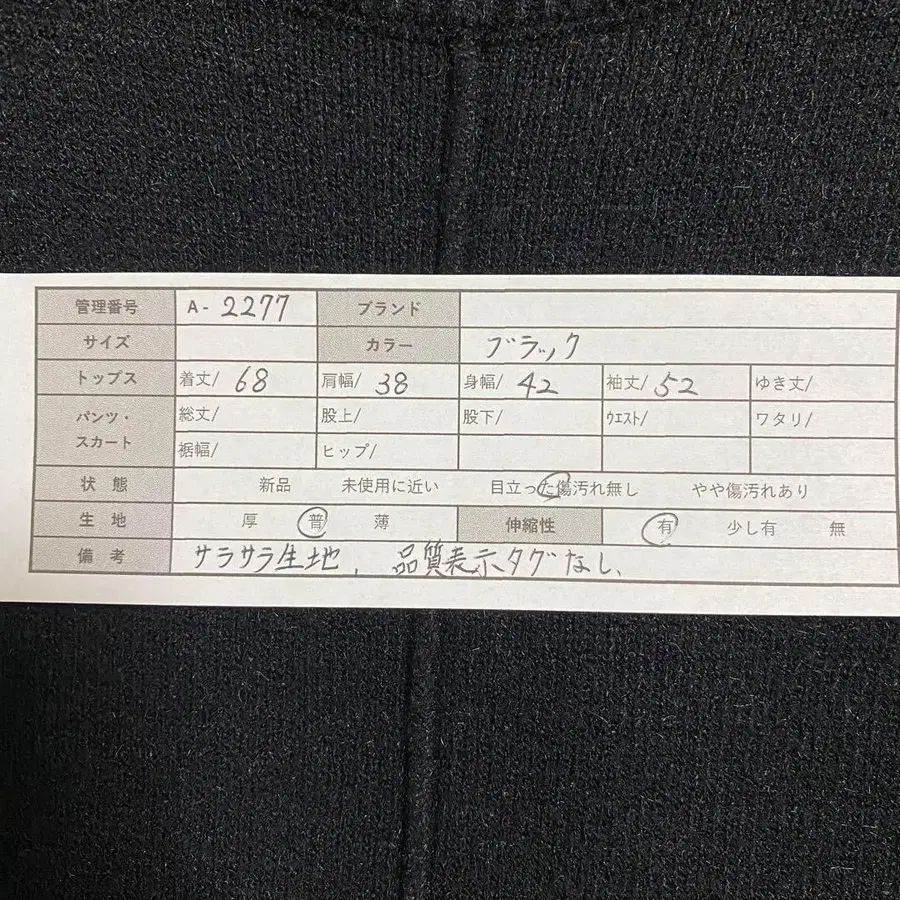 管理番号 A- 2277 ブランド
サイズ カラー ブラック
トップス 着丈/ 68 肩幅/ 38 身幅/ 42 袖丈/ 52 ゆき丈/
パンツ・スカート 総丈/ 股上/ 股下/ ウエスト/ ワタリ/
裾幅/ ヒップ/
状態 新品 未使用に近い 目立った傷汚れ無し やや傷汚れあり
生地 厚 普 薄 伸縮性 有 少し有 無
備考 サラサラ生地、品質表示タグなし、